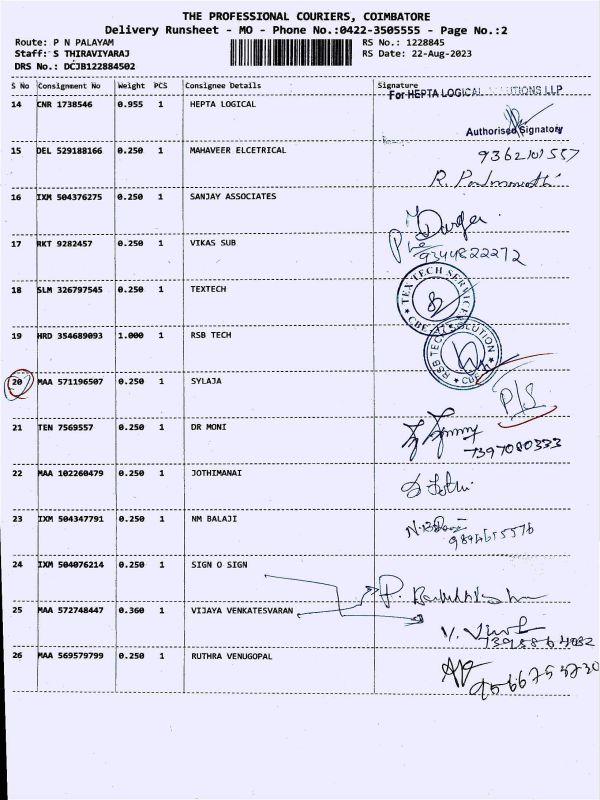 THE PROFESSIONAL COURIERS, COIMBATORE
Delivery Runsheet - MO - Phone No.:0422-3505555 - Page No.:2
Route: P N PALAYAM RS No.: 1228845
Staff: S THIRAVIYARAJ RS Date: 22-Aug-2023
DRS No.: DCJB122884502
S No Consignment No Weight PCS Consignee Details Signature
For HEPTA LOGICAL SOLUTIONS LLP
14 CNR 1738546 0.955 1 HEPTA LOGICAL
Authorised Signatory
15 DEL 529188166 0.250 1 MAHAVEER ELCETRICAL 9362101557
R.
16 IXM 504376275 0.250 1 SANJAY ASSOCIATES
Durga
17 RKT 9282457 0.250 1 VIKAS SUB
9344822272
18 SLM 326797545 0.250 1 TEXTECH
TEX TECH SERVICE CBE
19 HRD 354689093 1.000 1 RSB TECH
RSB TECH SOLUTION CBE
20 MAA 571196507 0.250 1 SYLAJA
P/S
21 TEN 7569557 0.250 1 DR MONI
7397080333
22 MAA 102260479 0.250 1 JOTHIMANAI
Jothi
23 IXM 504347791 0.250 1 NM BALAJI
9894655576
24 IXM 504076214 0.250 1 SIGN O SIGN
P.
25 MAA 572748447 0.360 1 VIJAYA VENKATESVARAN
V.
26 MAA 569579799 0.250 1 RUTHRA VENUGOPAL